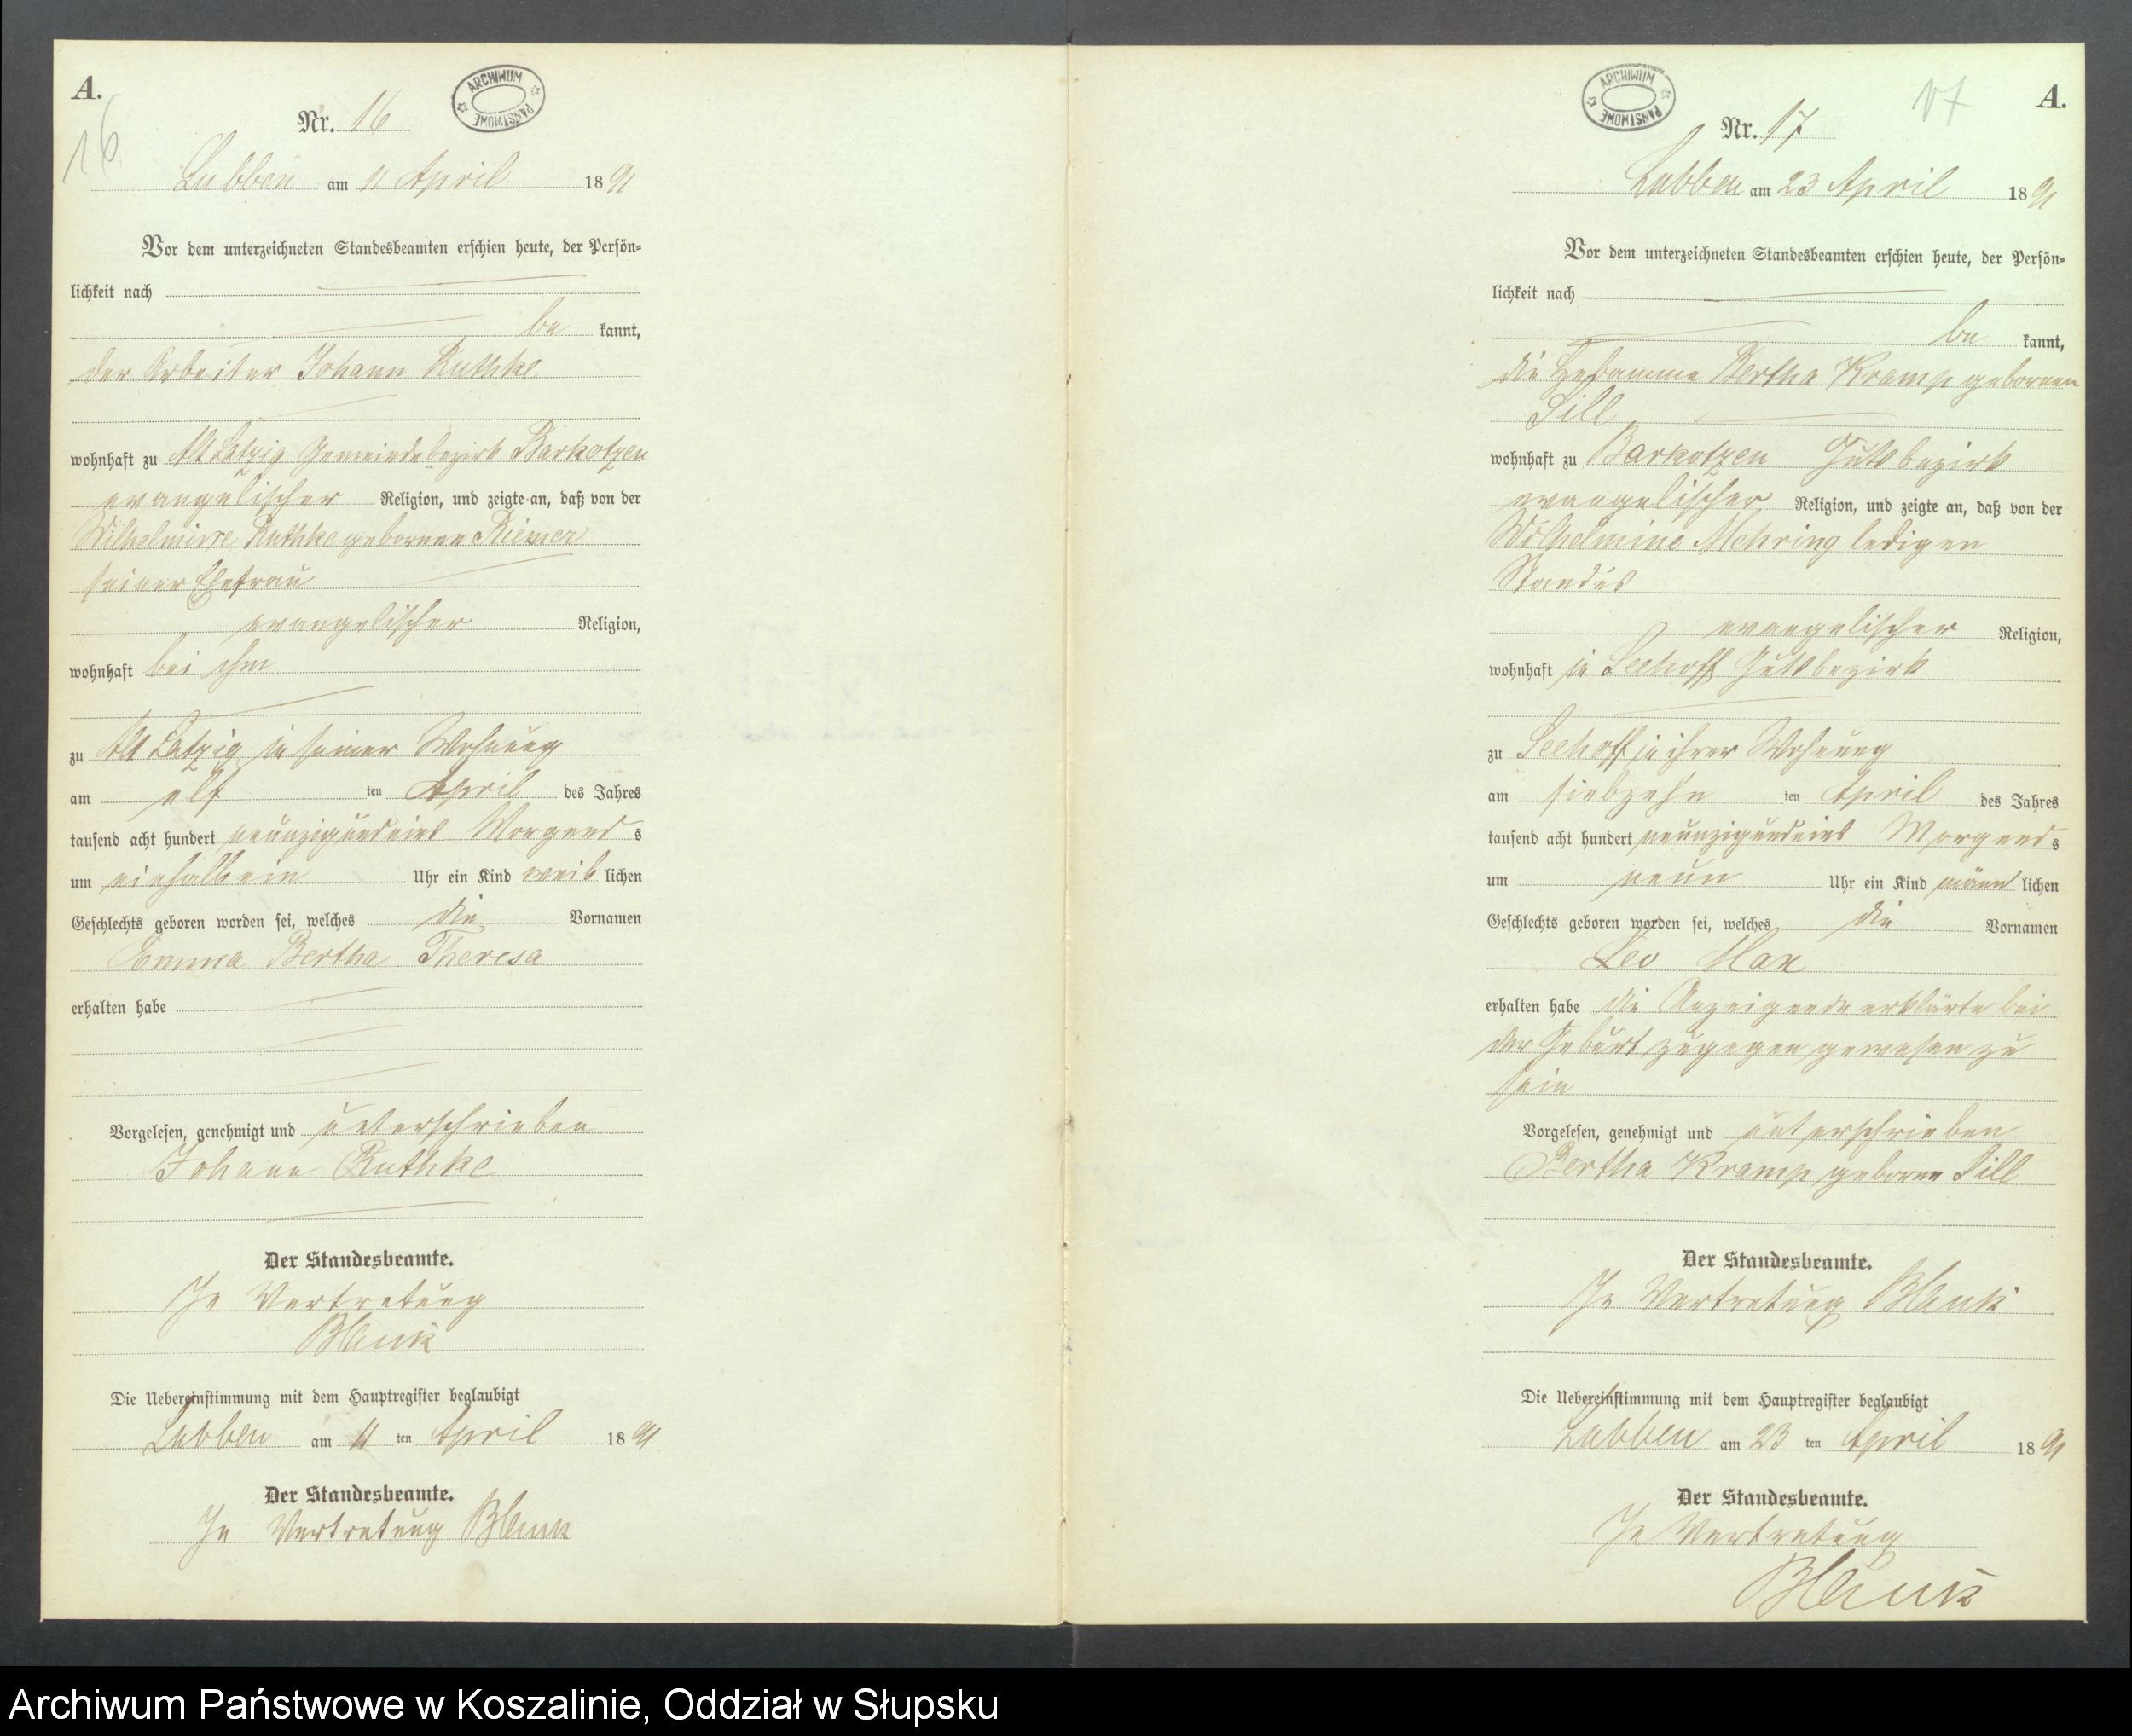 A.
16
ARCHIWUM PAŃSTWOWE
Nr. 16
Lubben am 11 April 1891
Vor dem unterzeichneten Standesbeamten erschien heute, der Persön-
lichkeit nach
be kannt,
der Arbeiter Johann Ruthke
wohnhaft zu Alt Latzig Gemeindebezirk Barkotzen
evangelischer Religion, und zeigte an, daß von der
Wilhelmine Ruthke geborenen Riemer
seiner Ehefrau
evangelischer Religion,
wohnhaft bei ihm
zu Alt Latzig in seiner Wohnung
am elf ten April des Jahres
tausend acht hundert neunzigundeins Morgend s
um einhalbein Uhr ein Kind weib lichen
Geschlechts geboren worden sei, welches die Vornamen
Emma Bertha Theresa
erhalten habe
Vorgelesen, genehmigt und unterschrieben
Johann Ruthke
Der Standesbeamte.
In Vertretung
Blank
Die Uebereinstimmung mit dem Hauptregister beglaubigt
Lubben am 11 ten April 1891
Der Standesbeamte.
In Vertretung Blank
ARCHIWUM PAŃSTWOWE
17
A.
Nr. 17
Lubben am 23 April 1891
Vor dem unterzeichneten Standesbeamten erschien heute, der Persön-
lichkeit nach
be kannt,
die Hebamme Bertha Kramp geborenen
Sill
wohnhaft zu Barkotzen Gutsbezirk
evangelischer Religion, und zeigte an, daß von der
Wilhelmine Mehring ledigen
Standes
evangelischer Religion,
wohnhaft in Seehoff Gutsbezirk
zu Seehoff in ihrer Wohnung
am siebzehn ten April des Jahres
tausend acht hundert neunzigundeins Morgend s
um neun Uhr ein Kind männ lichen
Geschlechts geboren worden sei, welches die Vornamen
Leo Max
erhalten habe die Anzeigende erklärte bei
der Geburt zugegen gewesen zu
sein
Vorgelesen, genehmigt und unterschrieben
Bertha Kramp geborne Sill
Der Standesbeamte.
In Vertretung Blank
Die Uebereinstimmung mit dem Hauptregister beglaubigt
Lubben am 23 ten April 1891
Der Standesbeamte.
In Vertretung
Blank
Archiwum Państwowe w Koszalinie, Oddział w Słupsku